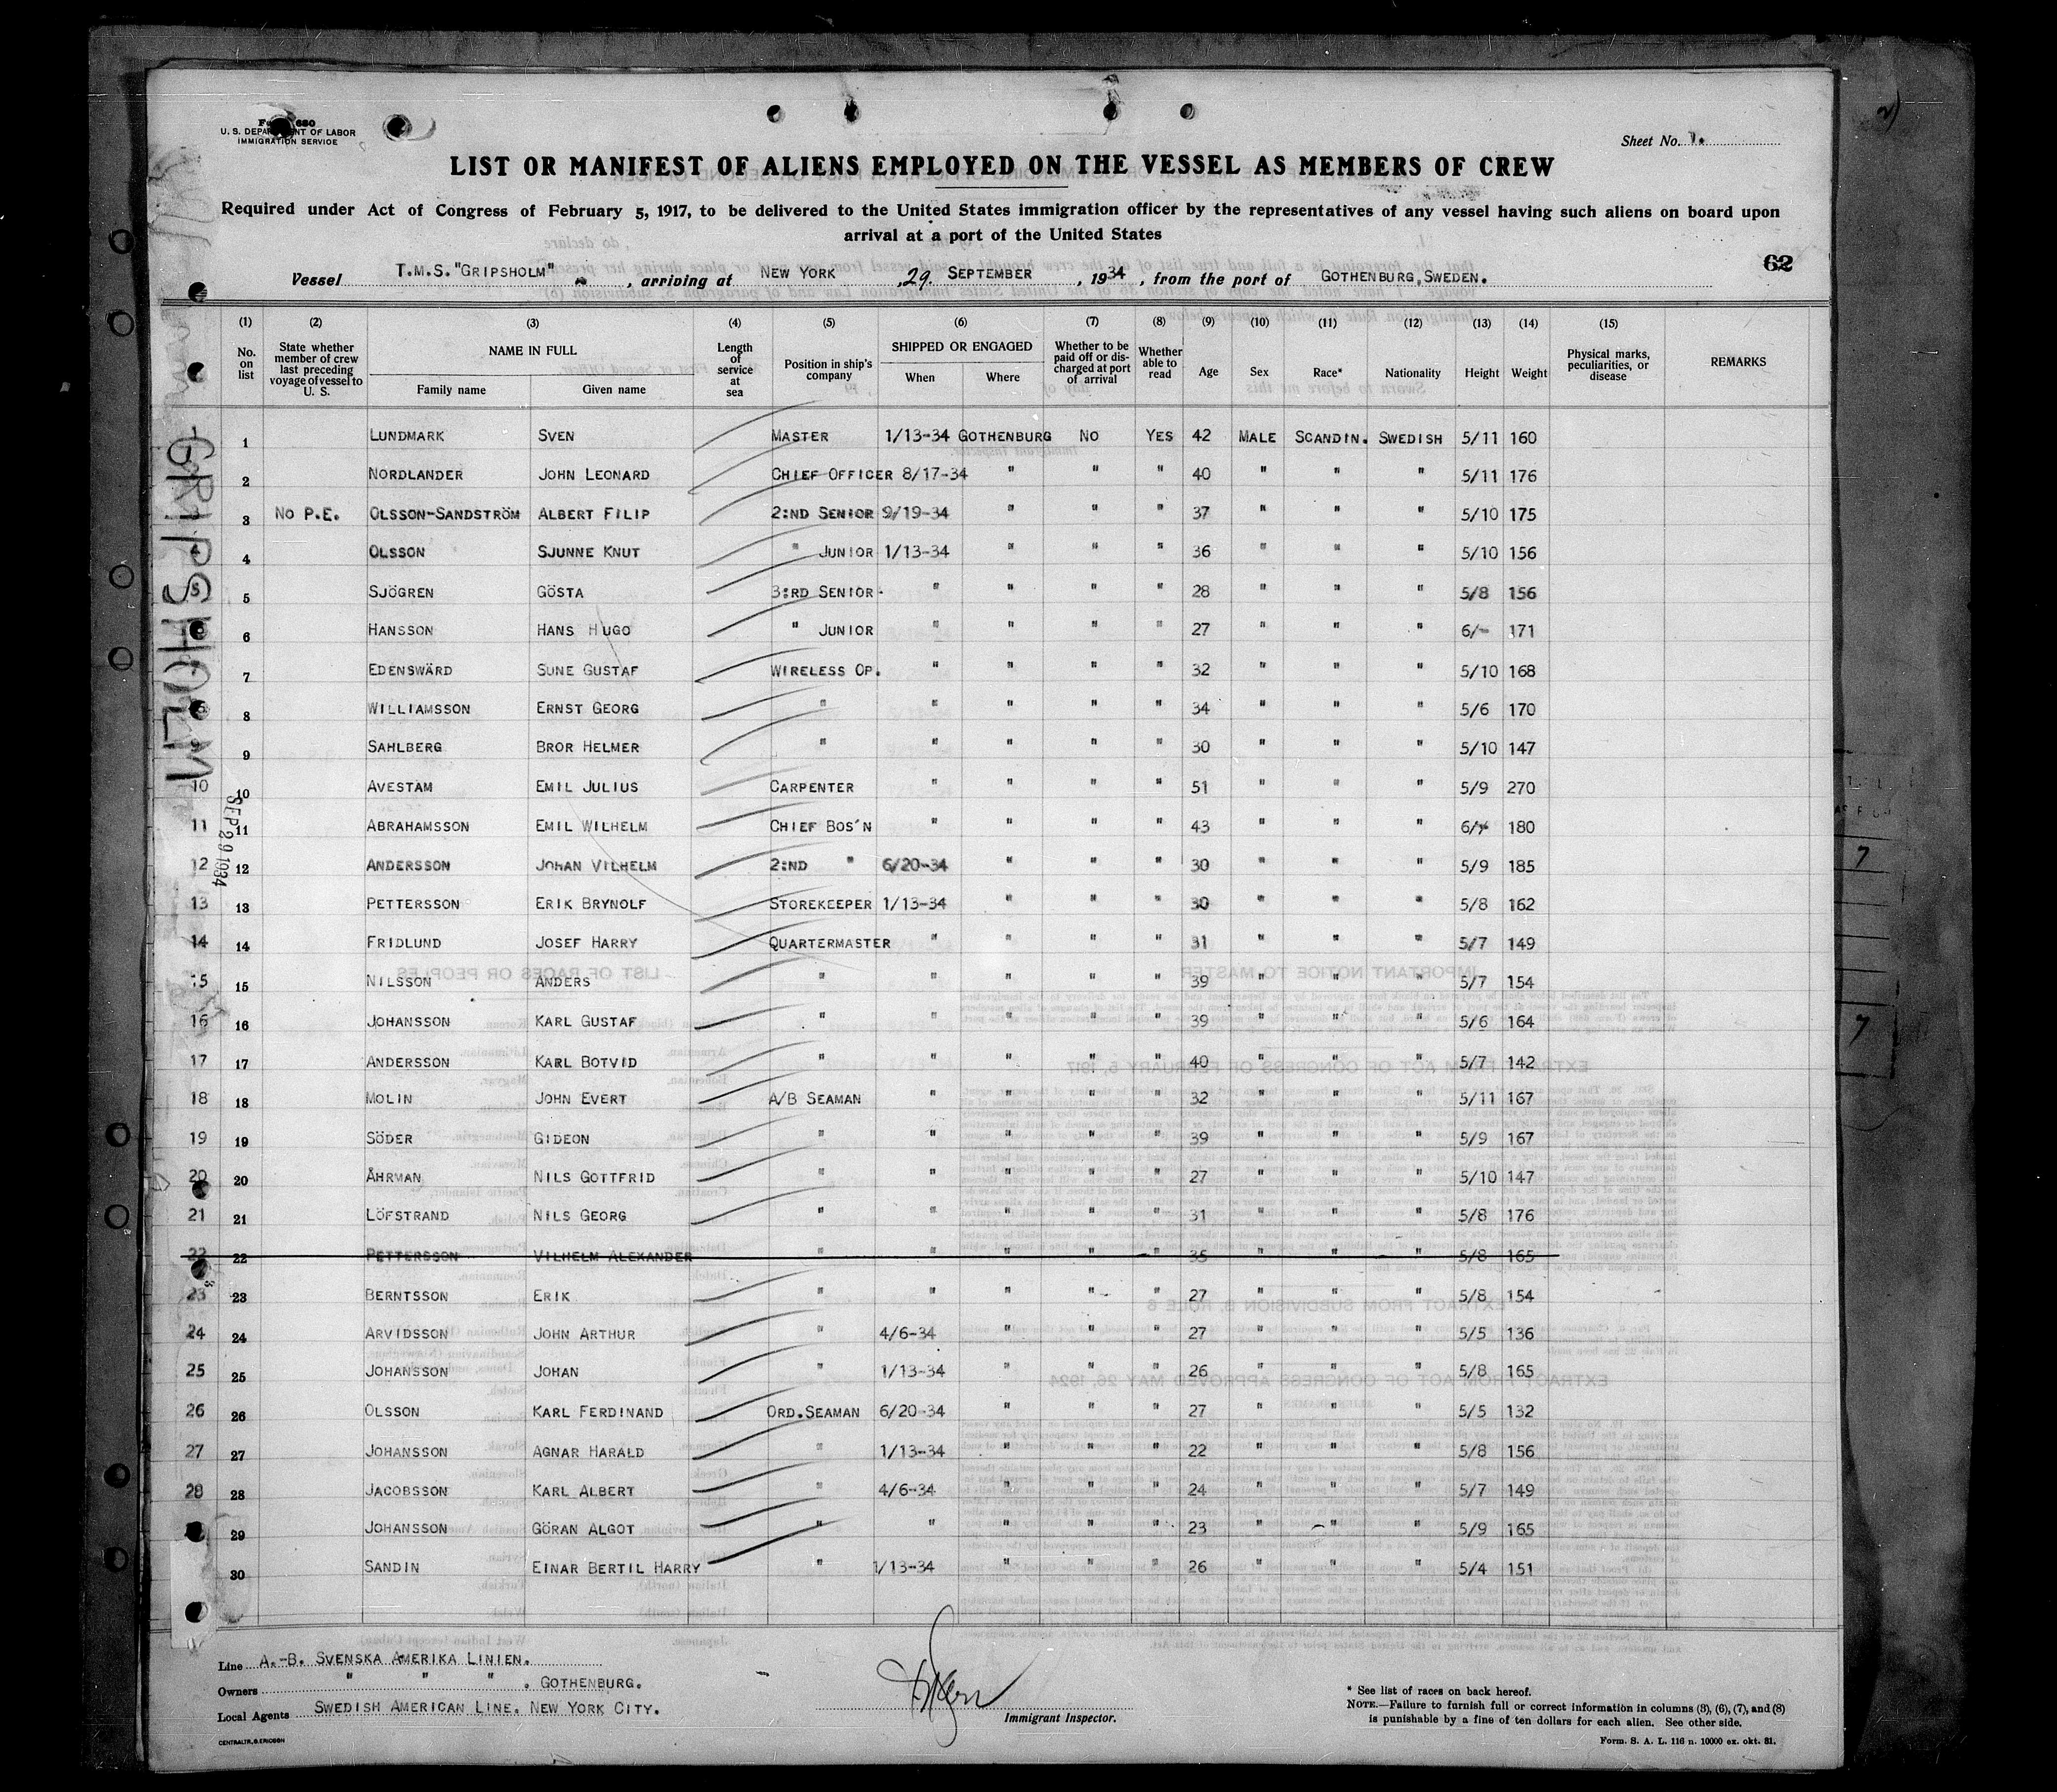 U. S. DEPARTMENT OF LABOR
IMMIGRATION SERVICE
Sheet No. 1.
LIST OR MANIFEST OF ALIENS EMPLOYED ON THE VESSEL AS MEMBERS OF CREW
Required under Act of Congress of February 5, 1917, to be delivered to the United States immigration officer by the representatives of any vessel having such aliens on board upon
arrival at a port of the United States
62
Vessel T.M.S. "GRIPSHOLM", arriving at NEW YORK, 29. SEPTEMBER, 1934, from the port of GOTHENBURG, SWEDEN.
(1) (2) (3) (4) (5) (6) (7) (8) (9) (10) (11) (12) (13) (14) (15)
No. on list | State whether member of crew last preceding voyage of vessel to U. S. | NAME IN FULL | Family name | Given name | Length of service at sea | Position in ship's company | SHIPPED OR ENGAGED | When | Where | Whether to be paid off or discharged at port of arrival | Whether able to read | Age | Sex | Race* | Nationality | Height | Weight | Physical marks, peculiarities, or disease | REMARKS
1 LUNDMARK SVEN MASTER 1/13-34 GOTHENBURG NO YES 42 MALE SCANDIN. SWEDISH 5/11 160
2 NORDLANDER JOHN LEONARD CHIEF OFFICER 8/17-34 " " " 40 " " " 5/11 176
3 NO P.E. OLSSON-SANDSTRÖM ALBERT FILIP 2:ND SENIOR 9/19-34 " " " 37 " " " 5/10 175
4 OLSSON SJUNNE KNUT " JUNIOR 1/13-34 " " " 36 " " " 5/10 156
5 SJÖGREN GÖSTA 3:RD SENIOR " " " " 28 " " " 5/8 156
6 HANSSON HANS HUGO " JUNIOR " " " " 27 " " " 6/- 171
7 EDENSWÄRD SUNE GUSTAF WIRELESS OP. " " " " 32 " " " 5/10 168
8 WILLIAMSSON ERNST GEORG " " " " " 34 " " " 5/6 170
9 SAHLBERG BROR HELMER " " " " " 30 " " " 5/10 147
10 10 AVESTAM EMIL JULIUS CARPENTER " " " " 51 " " " 5/9 270
11 11 ABRAHAMSSON EMIL WILHELM CHIEF BOS'N " " " " 43 " " " 6/ 180
12 12 ANDERSSON JOHAN VILHELM 2:ND " 6/20-34 " " " 30 " " " 5/9 185
13 13 PETTERSSON ERIK BRYNOLF STOREKEEPER 1/13-34 " " " 30 " " " 5/8 162
14 14 FRIDLUND JOSEF HARRY QUARTERMASTER " " " " 31 " " " 5/7 149
15 15 NILSSON ANDERS " " " " " 39 " " " 5/7 154
16 16 JOHANSSON KARL GUSTAF " " " " " 39 " " " 5/6 164
17 17 ANDERSSON KARL BOTVID " " " " " 40 " " " 5/7 142
18 18 MOLIN JOHN EVERT A/B SEAMAN " " " " 32 " " " 5/11 167
19 19 SÖDER GIDEON " " " " " 39 " " " 5/9 167
20 20 ÅHRMAN NILS GOTTFRID " " " " " 27 " " " 5/10 147
21 21 LÖFSTRAND NILS GEORG " " " " " 31 " " " 5/8 176
22 22 PETTERSSON VILHELM ALEXANDER " " " " " 35 " " " 5/8 165
23 23 BERNTSSON ERIK " " " " " 27 " " " 5/8 154
24 24 ARVIDSSON JOHN ARTHUR " 4/6-34 " " " 27 " " " 5/5 136
25 25 JOHANSSON JOHAN " 1/13-34 " " " 26 " " " 5/8 165
26 26 OLSSON KARL FERDINAND ORD. SEAMAN 6/20-34 " " " 27 " " " 5/5 132
27 27 JOHANSSON AGNAR HARALD " 1/13-34 " " " 22 " " " 5/8 156
28 28 JACOBSSON KARL ALBERT " 4/6-34 " " " 24 " " " 5/7 149
29 JOHANSSON GÖRAN ALGOT " " " " " 23 " " " 5/9 165
30 SANDIN EINAR BERTIL HARRY " 1/13-34 " " " 26 " " " 5/4 151
GRIPSHOLM
SEP 29 1934
Line A.-B. SVENSKA AMERIKA LINIEN.
Owners " " " , GOTHENBURG.
Local Agents SWEDISH AMERICAN LINE, NEW YORK CITY.
Immigrant Inspector.
* See list of races on back hereof.
NOTE.—Failure to furnish full or correct information in columns (3), (6), (7), and (8)
is punishable by a fine of ten dollars for each alien. See other side.
CENTRALTR., G. ERICSON
Form. S. A. L. 116 n. 10000 ex. okt. 31.